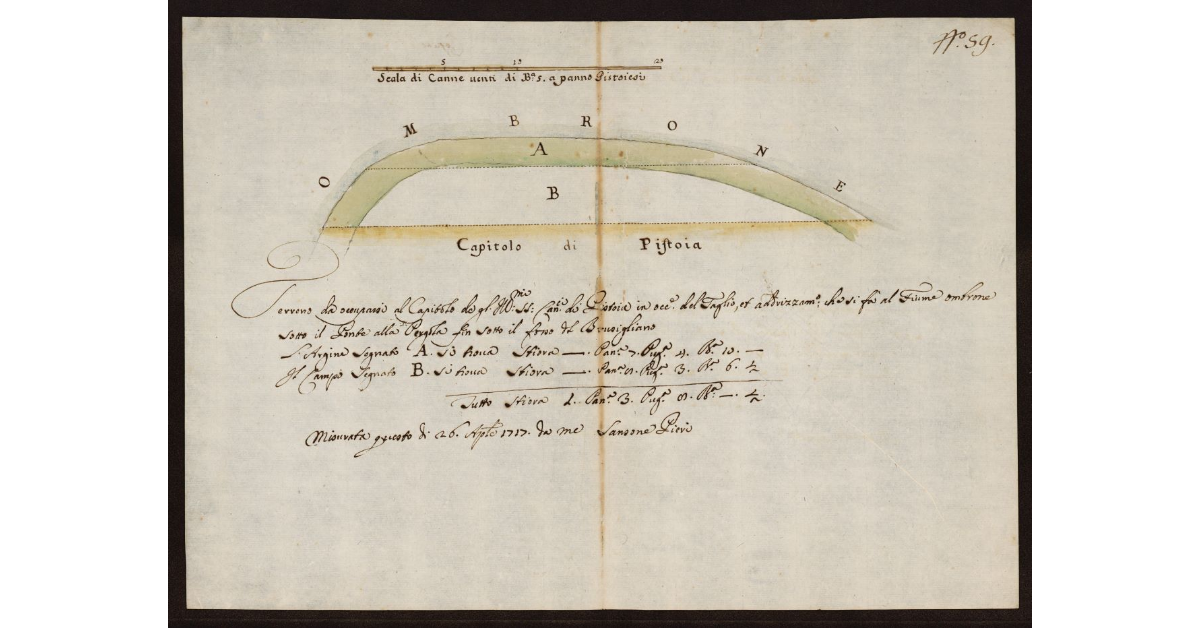 Nº. 59.
5 15 25
Scala di Canne uenti di Bª 5. a panno Pistoiesi
O M B R O N E
A
B
Capitolo di Pistoia
Terreno da occuparsi al Capitolo de gl' Ill.mi SS: Can.ci di Pistoia in occ.e del Taglio, et addrizzam.o che si fa al Fiume ombrone
sotto il Ponte alla Pergola fin sotto il
L'Argine Segnato A. si troua Stiora —. Pan.i 7. Pug.a 4. B.a 10. —
Il Campo Segnato B. si troua Stiora —. Pan.i 8. Pug.a 3. B.a 6. ½
Tutto Stiora 1. Pan.i 3. Pug.a 8. B.a —. ½
Misurata questo dì 26. Aple 1717. da me Sansone Pieri